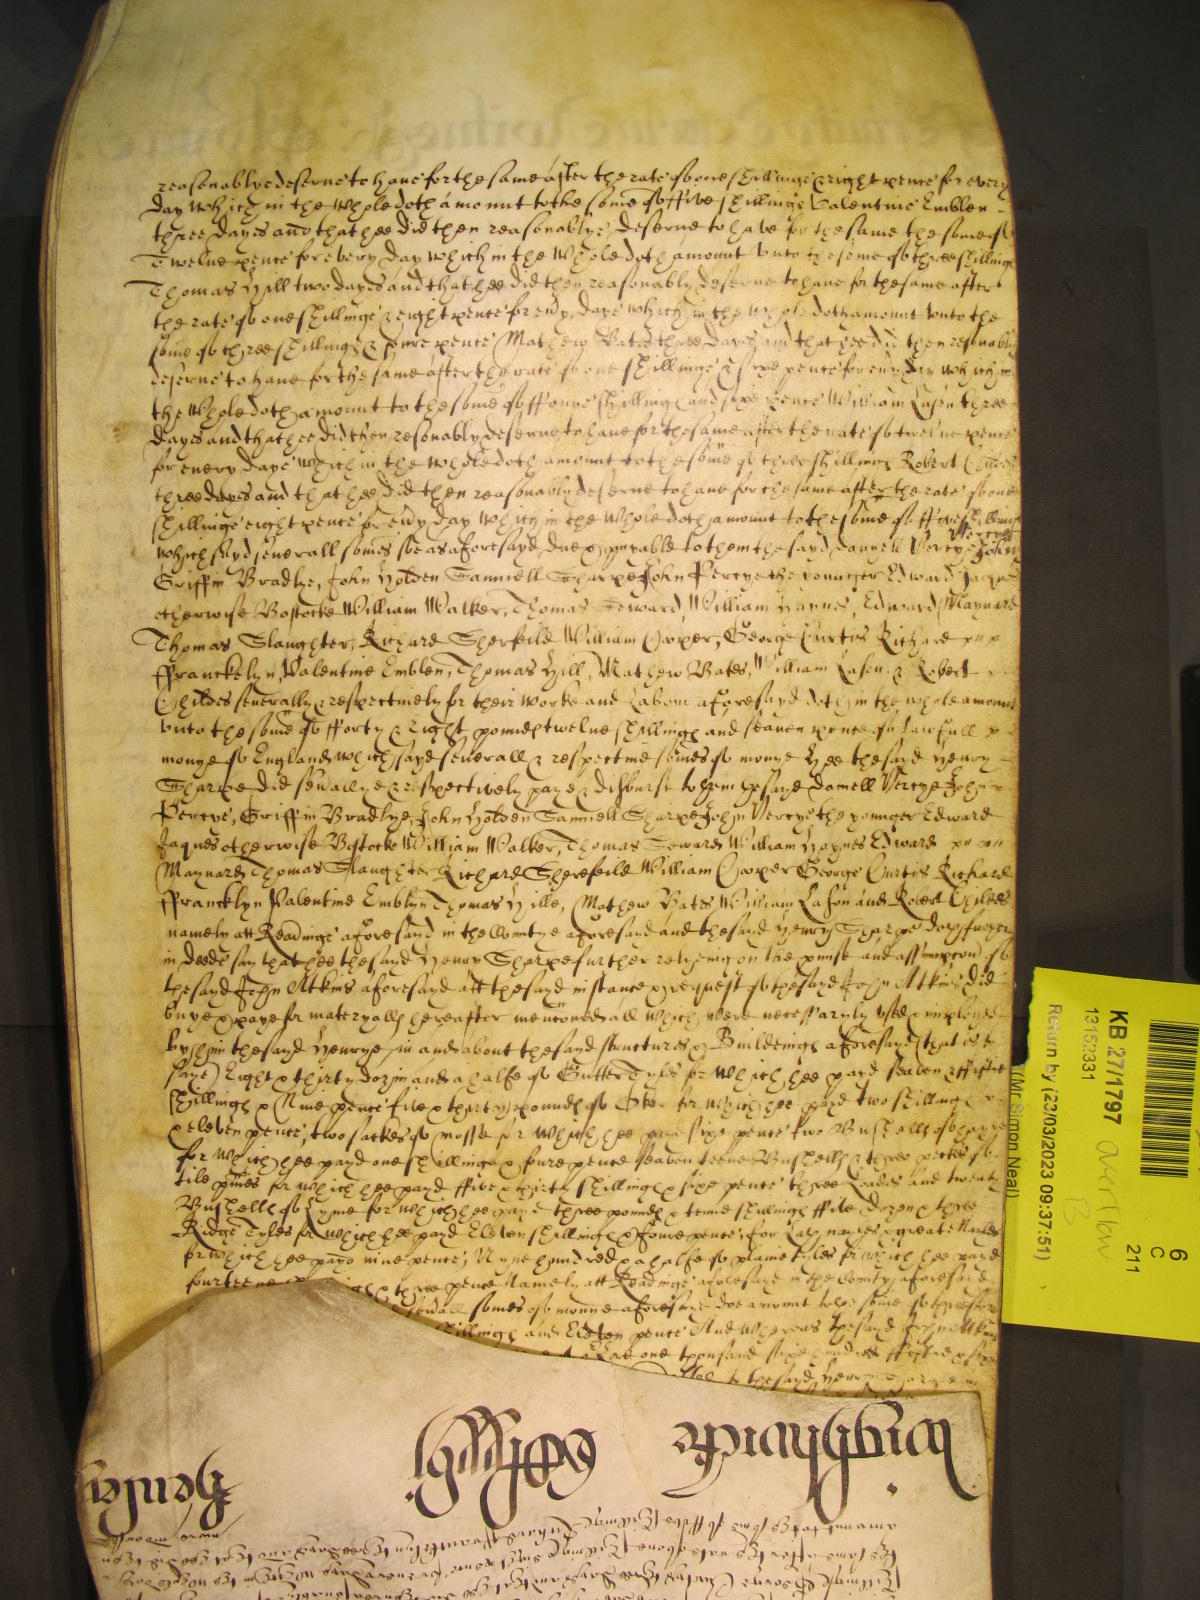 reasonablye deserue to haue for the same after the rate of one shillinge & eight pence for every
day which in the whole doth amount to the some of ffive shillinge Valentine Emblen
three dayes and that hee did then reasonablye deserue to have for the same the some of
Twelve pence for every day which in the whole doth amount vnto the some of three shillinge
Thomas Hill two dayes and that hee did then reasonably deserue to haue for the same after
the rate of one shillinge & eight pence for euy daye which in the whole doth amount vnto the
some of three shillings & foure pence Mathew Bates three dayes and that hee did then resonably
deserue to haue for the same after the rate of one shillinge & sixe pence for euy day which in
the whole doth amount to the some of ffoure shillings and sixe pence William Lason three
dayes and that hee did then resonably deserue to haue for the same after the rate of twelue pence
for euery daye which in the whole doth amount to the some of three shillings Robert Childes
three dayes and that hee did then reasonably deserue to haue for the same after the rate of one
shillinge eight pence for euy day which in the whole doth amount to the some of ffive shillings
which sayd seuerall somes soe as aforesayd due & payable to them the sayd Daniell Percye John Percye
Griffin Bradlye, John Holden Samuell Sharpe John Percye the younger Edward Jaques
otherwise Bostocke William Walker, Thomas Seward William Haynes, Edward Maynard
Thomas Slaughter, Richard Sherfeild William Cooper, George Curtis Richard
ffrancklyn, Valentine Emblen, Thomas Hill, Mathew Bates, William Lason & Robert
Childes seuerally & respectiuely for their worke and Labour aforesayd doth in the whole amount
vnto the some of fforty & Eight poundes twelue shillings and seauen pence of lawfull
monye of England which sayd seuerall & respectiue somes of monye hee the sayd Henry
Sharpe did seuallye & respectively paye & disburst to them the sayd Daniell Percye John
Percye, Griffin Bradlye, John Holden Samuell Sharpe John Percye the younger Edward
Jaques otherwise Bostocke William Walker, Thomas Seward William Haynes Edward
Maynard Thomas Slaughter Richard Sherefeild William Cooper George Curtis Richard
ffrancklyn Valentine Emblyn Thomas Hille, Mathew Bates William Lason and Robert Childes
namely att Readinge aforesayd in the Countye aforesayd and the sayd Henry Sharpe doth further
in deede say that hee the sayd Henry Sharpe further relyeing on the pmise and assumpcon of
the sayd John Atkins aforesayd att the sayd instance & request of the sayd John Atkins did
buye & paye for materyalls hereafter menconed all which were necessaryly vsed & imployed
by him the sayd Henrye in and about the sayd structures & Buildeings aforesayd (that is to
saye) Eight & thirty dozin and a halfe of Gutter Tyles for which hee payd seaven & ffiftie
shillings & Nine pence five & thirty pounds of for which hee payd two shillings
& eleven pence, two sackes of mosse for which hee payd sixe pence two Bushells of hayre
for which hee payd one shillinge & foure pence seaventeene Bushells & three peckes of
tile pinnes for which hee payd ffive & thirty shillings & sixe pence three Loades and twenty
Bushells of Lyme for which hee payd three pounds & tenne shillings ffive Dozen & three
Ridge Tyles for which hee payd Eleven shillings & foure pence, for Lath nayles & great Nailes
for which hee payd nine pence, Nyne hundred & a halfe of plaine tyles for which hee payd
fourteene & three pence Namely att Readinge aforesayd in the County aforesayd
seuerall somes of monye aforesayd doe amount to the some of
shillings and Eleven pence And whereas the sayd John Atkins
one thousand sixe hundred ffiftie &
to the sayd Henry Sharpe
Wightwicke
Henley
KB 27/1797
13152331
Return by (23/03/2023 09:37:51)
(Mr Simon Neal)
overflow
B
6
C
211